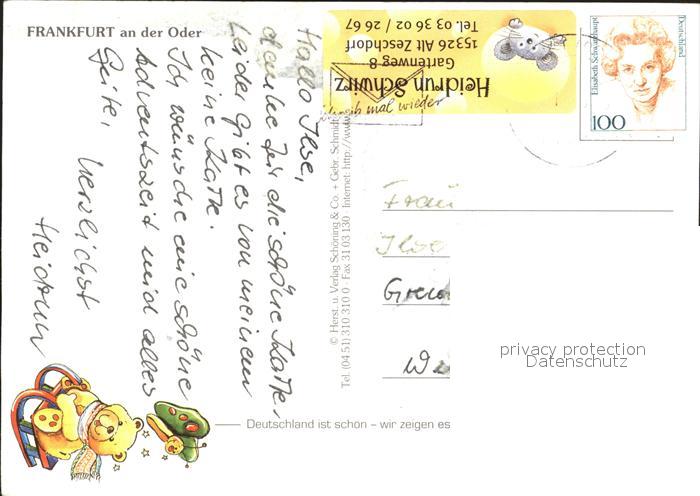 FRANKFURT an der Oder
Hallo Ilse,
danke für die schöne Karte.
Leider gibt es von meinem
keine Karte.
Ich wünsche eine schöne
Adventszeit und alles
Gute.
Herzlichst
Heidrun
Heidrun Schwirz
Gartenweg 8
15326 Alt Zeschdorf
Tel. 03 36 02 / 26 67
schreib mal wieder
Elisabeth Schwarzhaupt
Deutschland
100
© Herst. u. Verlag Schöning & Co. + Gebr. Schmidt
Tel. (04 51) 310 310 0 · Fax 31 03 130 · Internet: http://www
Frau
Ilse
privacy protection
Datenschutz
Deutschland ist schön – wir zeigen es